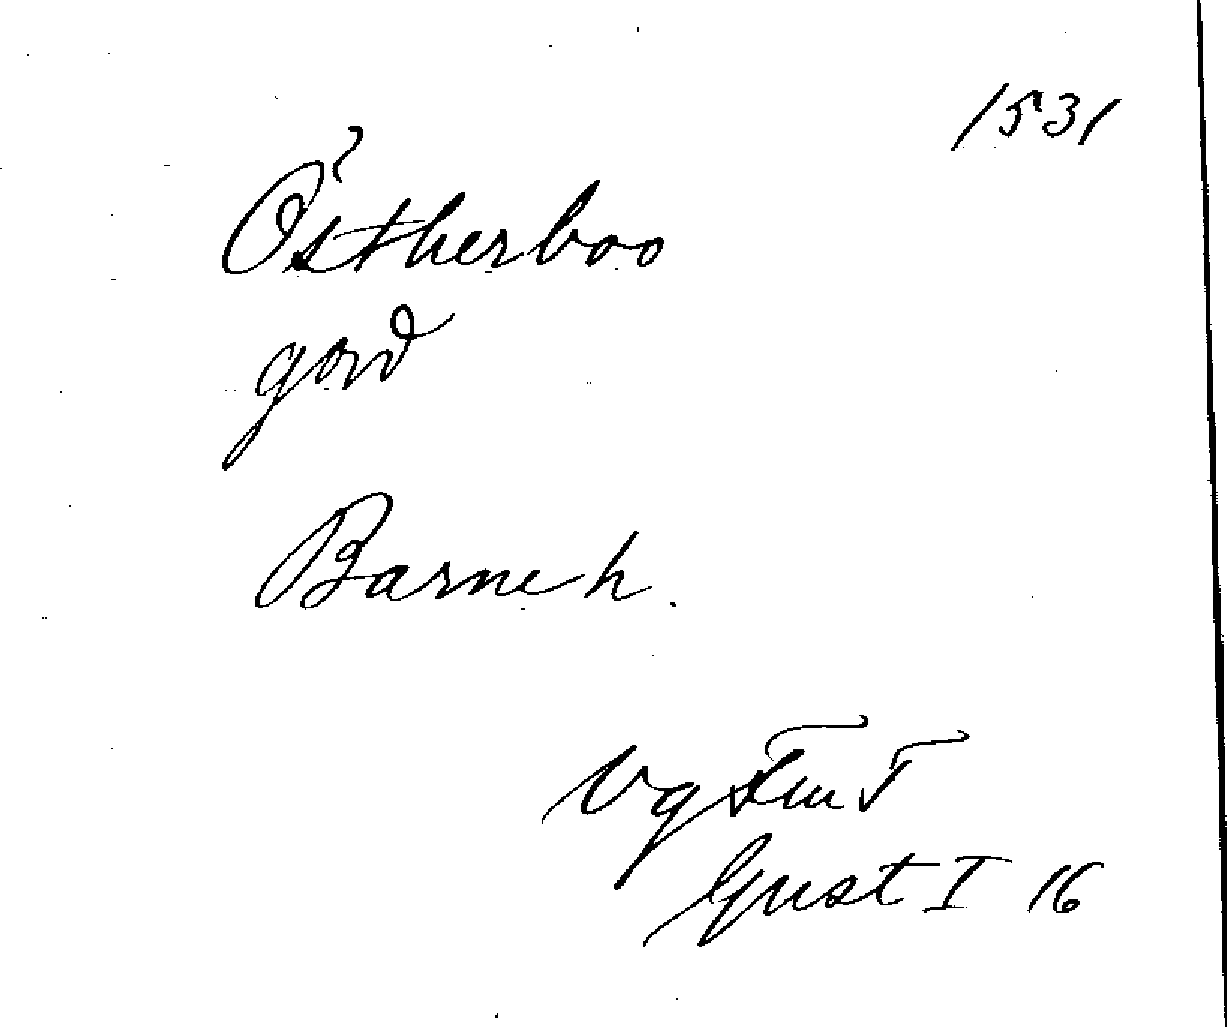 1531
Östherboo
gård
Barne h.
Vg FmT
Gust I 16